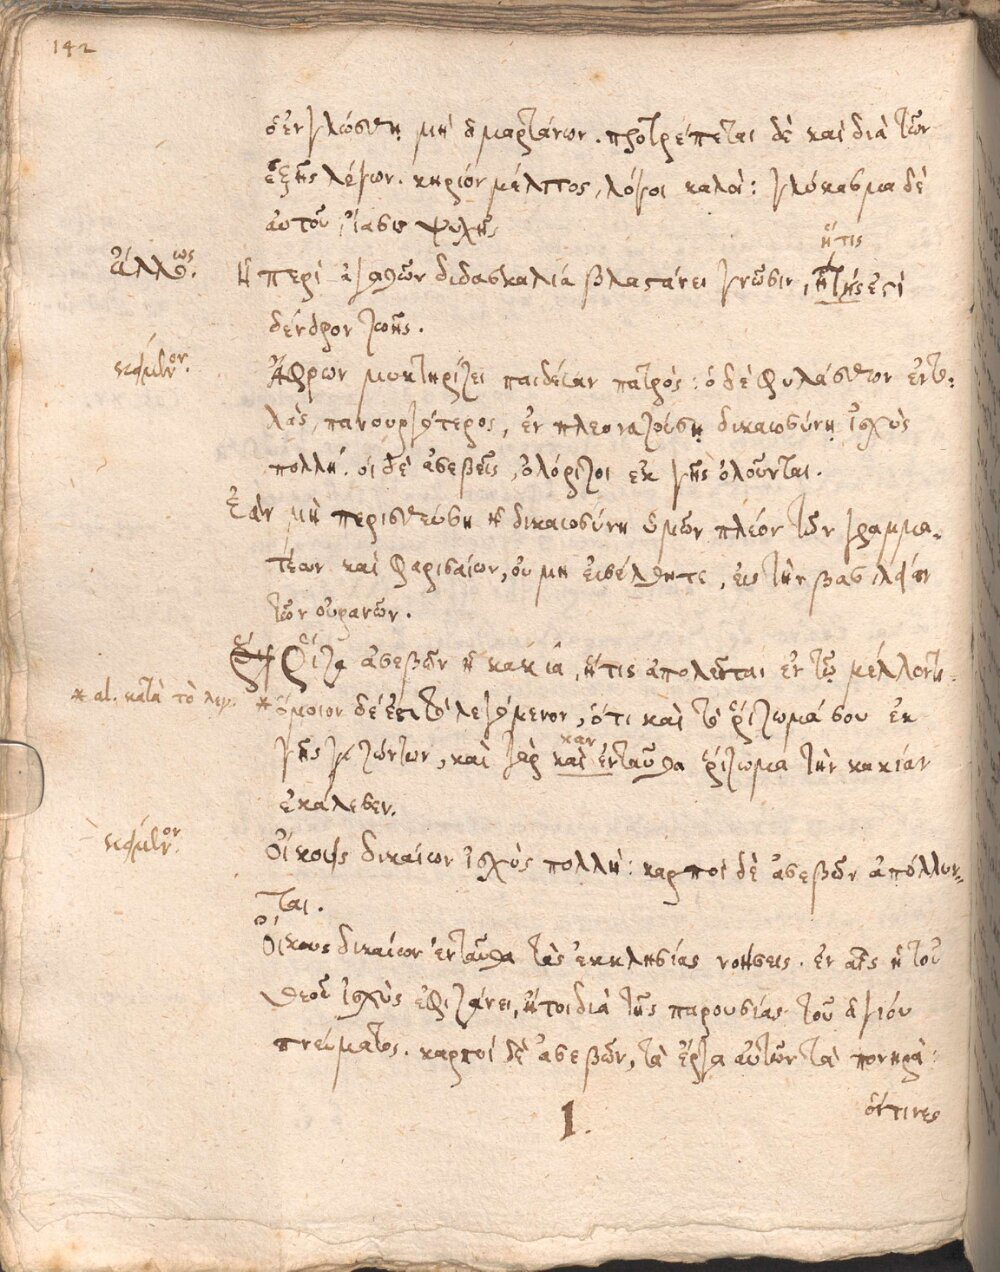 142
ἐν γλώσσῃ μὴ ἁμαρτάνων. προτρέπεται δὲ καὶ διὰ τῶν
ἑξῆς λέγων. κηρίον μέλιτος, λόγοι καλοί: γλύκασμα δὲ
αὐτοῦ, ἴασις ψυχῆς
ἥτις
ἄλλως. Ἡ περὶ ἀγαθῶν διδασκαλία βλαστάνει γνῶσιν, ἥτις ἐστὶ
δένδρον ζωῆς.
κείμενον. Ἄφρων μυκτηρίζει παιδείαν πατρός: ὁ δὲ φυλάσσων ἐντο-
λὰς, πανουργότερος, ἐν πλεοναζούσῃ δικαιοσύνῃ ἰσχὺς
πολλή. οἱ δὲ ἀσεβεῖς, ὁλόριζοι ἐκ γῆς ὀλοῦνται.
Ἐὰν μὴ περισσεύσῃ ἡ δικαιοσύνη ὑμῶν πλέον τῶν γραμμα-
τέων καὶ φαρισαίων, οὐ μὴ εἰσέλθητε, εἰς τὴν βασιλείαν
τῶν οὐρανῶν.
Ῥίζα ἀσεβῶν ἡ κακία, ἥτις ἀπολεῖται ἐν τῷ μέλλοντι.
* al. κατὰ τὸ λεγ. * ὅμοιον δέ ἐστι τὸ λεγόμενον, ὅτι καὶ τὸ ῥίζωμά σου ἐκ
γῆς ζώντων, καὶ γὰρ καὶ ἐνταῦθα ῥίζωμα τὴν κακίαν
κἀν
ἐκάλεσεν.
κείμενον. Οἴκοις δικαίων ἰσχὺς πολλή: καρποὶ δὲ ἀσεβῶν ἀπόλλυν-
ται.
Οἴκους δικαίων ἐνταῦθα τὰς ἐκκλησίας νοήσεις. ἐν αἷς ἡ τοῦ
θεοῦ ἰσχὺς ἐφιζάνει, ἤτοι διὰ τῆς παρουσίας τοῦ ἁγίου
πνεύματος. καρποὶ δὲ ἀσεβῶν, τὰ ἔργα αὐτῶν τὰ πονηρά:
οἵτινες
1.